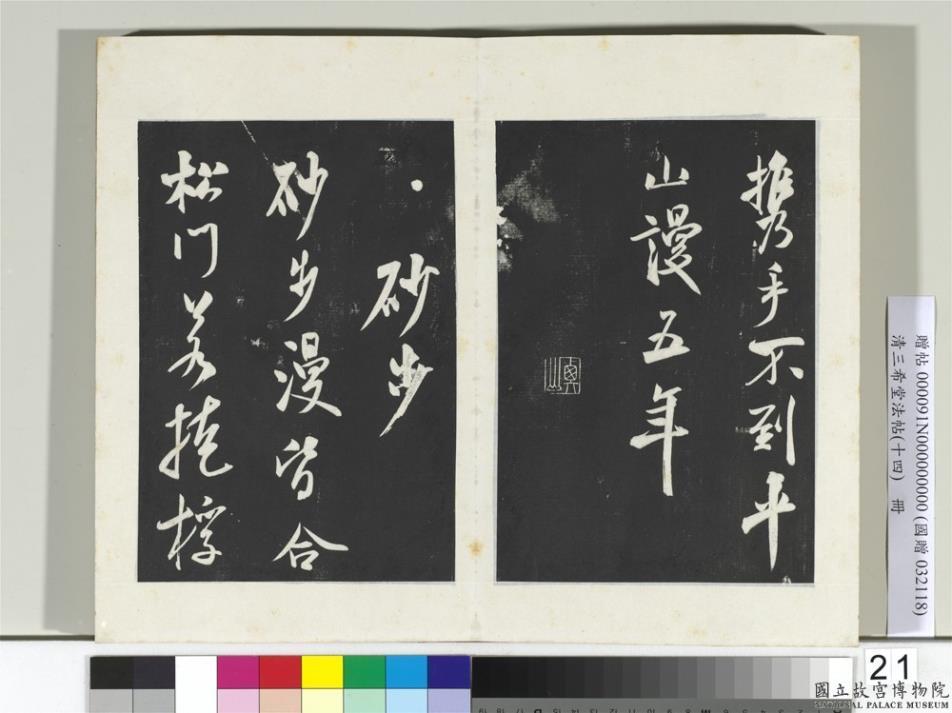 携手不到平
山謾五年
砂步
砂步漫皆合
松門若掩桴
贈帖 000091N000000000 (國贈 032118)
清三希堂法帖(十四) 冊
21
國立故宮博物院
NATIONAL PALACE MUSEUM